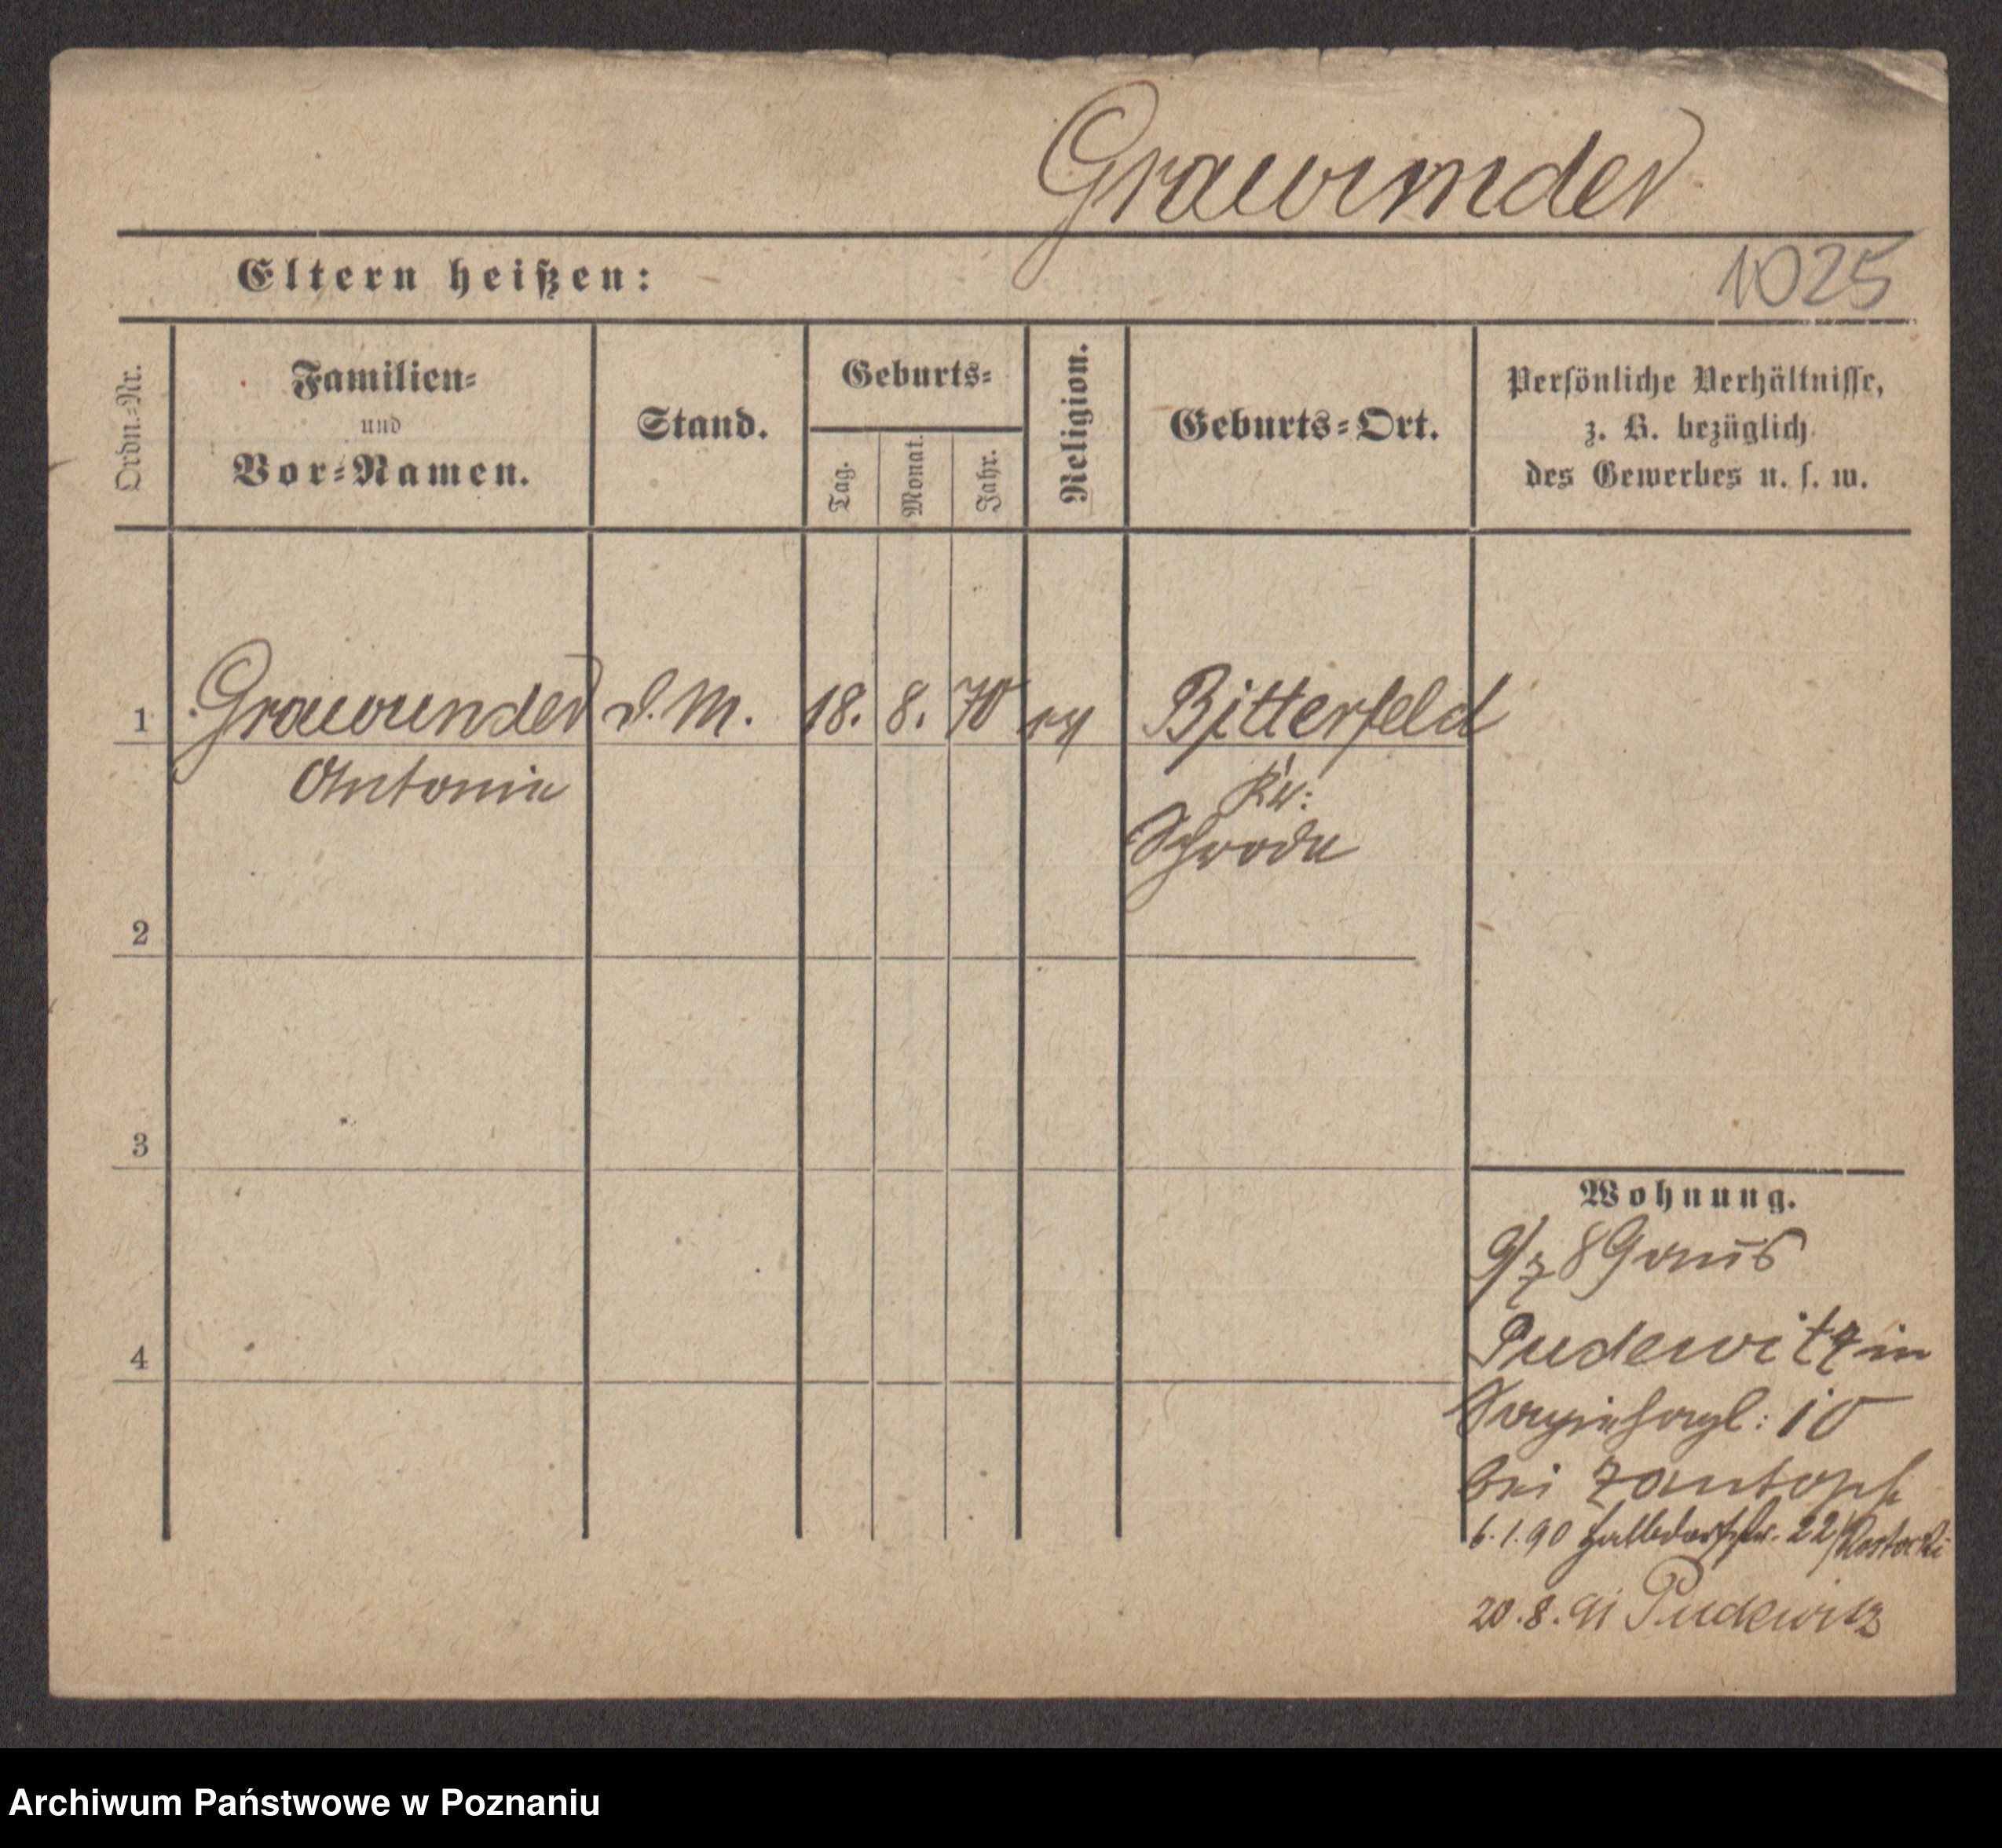 Grawunder
1025
Eltern heißen:
Ordn.-Nr.
Familien-
und
Vor-Namen.
Stand.
Geburts-
Tag.
Monat.
Jahr.
Religion.
Geburts-Ort.
Persönliche Verhältnisse,
z. B. bezüglich
des Gewerbes u. s. w.
1 Grawunder d. M. 18. 8. 70 Bitterfeld
Antonie
Kr:
Schroda
2
3
4
Wohnung.
9/7 89 aus
Pudewitz in
10
bei Zantoph
6.1.90 Halbdorfstr. 22/Rostocki
20.8.91 Pudewitz
Archiwum Państwowe w Poznaniu